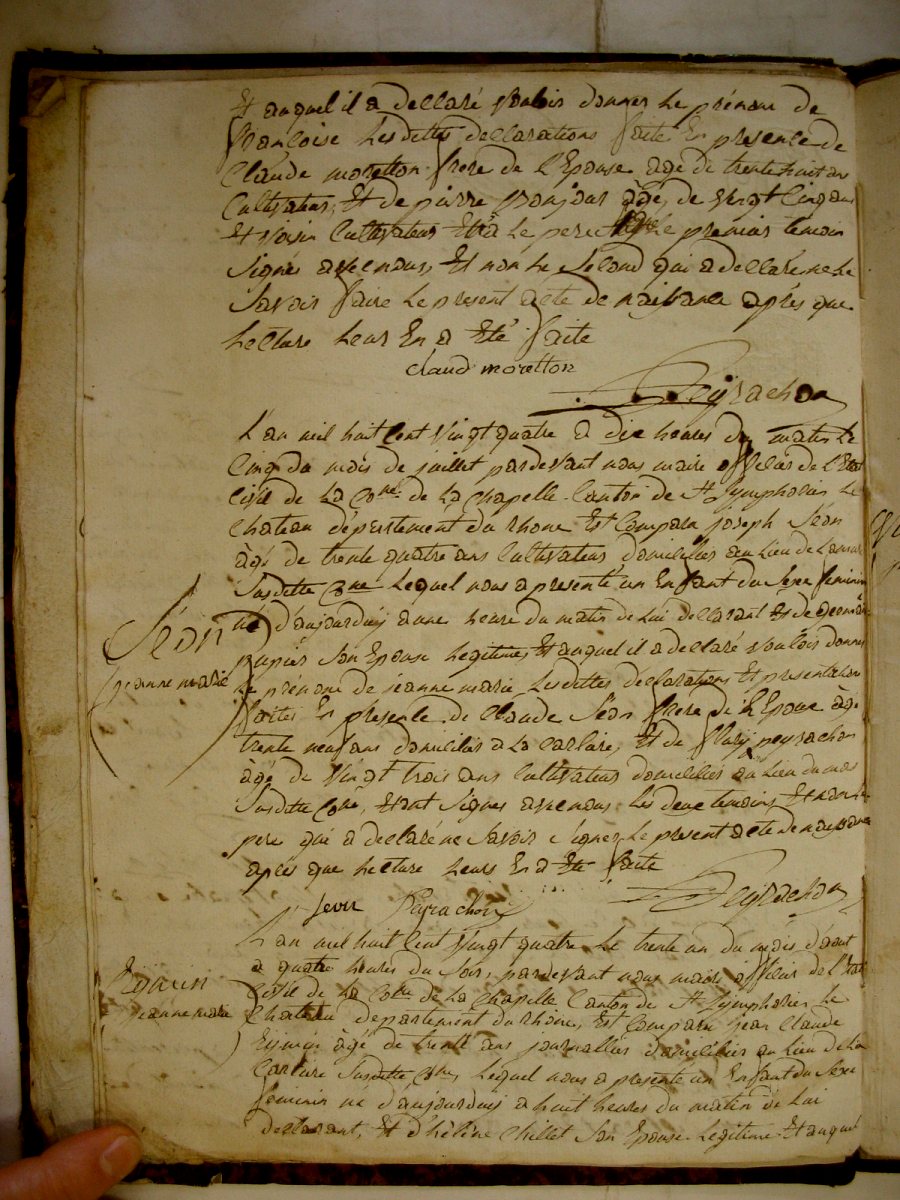 Et auquel il a declaré vouloir donner le prénom de
françoise lesdittes declarations faite En presence de
Claude moretton frere de l'Epouse agé de trente huit ans
Cultivateur, Et de pierre âgé de vingt cinq ans
Et voisin Cultivateur Et a le pere Le premier temoin
signés avec nous, Et non le second qui a declaré ne le
savoir faire le present acte de naissance après que
lecture leur En a Eté faite
claud moretton
Peyrachon
L'an mil huit cent vingt quatre a dix heures du matin le
cinq du mois de juillet pardevant nous maire officier de l'Etat
civil de la Cone de la chapelle Canton de St Symphorien le
chateau département du rhone Est Comparu joseph Séon
âgé de trente quatre ans Cultivateur domicilier au lieu de
susditte Cone lequel nous a presenté un Enfant du sexe feminin
né d'aujourduij a une heure du matin de lui declarant Et de
pupier son Epouse legitime, Et auquel il a declaré vouloir donner
le prénom de jeanne marie lesdittes déclarations Et presentation
faites En presence de claude Séon frere de l'Epoux âgé
trente neuf ans domicilié a la carlaire, Et de fleury peyrachon
âgé de vingt trois ans Cultivateur domicilier au lieu du
susditte Cone, Etant signes avec nous les deux temoins Et non le
pere qui a declaré ne savoir signer le present acte de naissance
après que lecture leurs En a Eté faite
Séon
jeanne marie
Peyrachon
Peyrachon
L'an mil huit cent vingt quatre le trente un du mois d'aout
a quatre heures du soir, pardevant nous maire officier de l'Etat
civil de la Cone de la chapelle Canton de St Symphorien le
Chateau departement du rhône, Est Comparu jean claude
âgé de trente ans journallier domicilier au lieu de la
carlaire susditte Cone, lequel nous a presenté un Enfant du sexe
feminin né d'aujourduij a huit heures du matin de lui
declarant, Et d'hélène Chillet son Epouse legitime Et auquel
jeanne marie